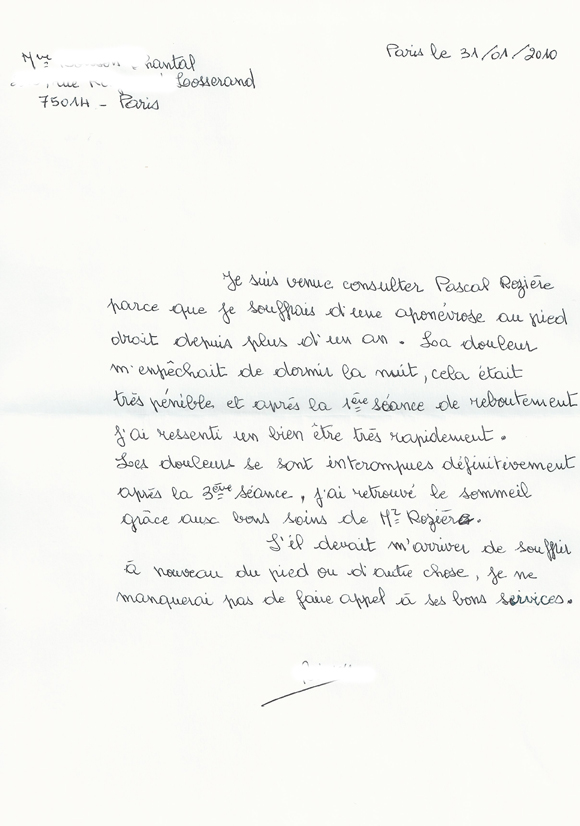 Mme Chantal
rue Losserand
75014 - Paris
Paris le 31/01/2010
Je suis venue consulter Pascal Rozière
parce que je souffrais d'une aponévrose au pied
droit depuis plus d'un an. La douleur
m'empêchait de dormir la nuit, cela était
très pénible et après la 1ère séance de reboutement
j'ai ressenti un bien être très rapidement.
Les douleurs se sont interompues définitivement
après la 3ème séance, j'ai retrouvé le sommeil
grâce aux bons soins de Mr Rozière.
S'il devait m'arriver de souffrir
à nouveau du pied ou d'autre chose, je ne
manquerai pas de faire appel à ses bons services.